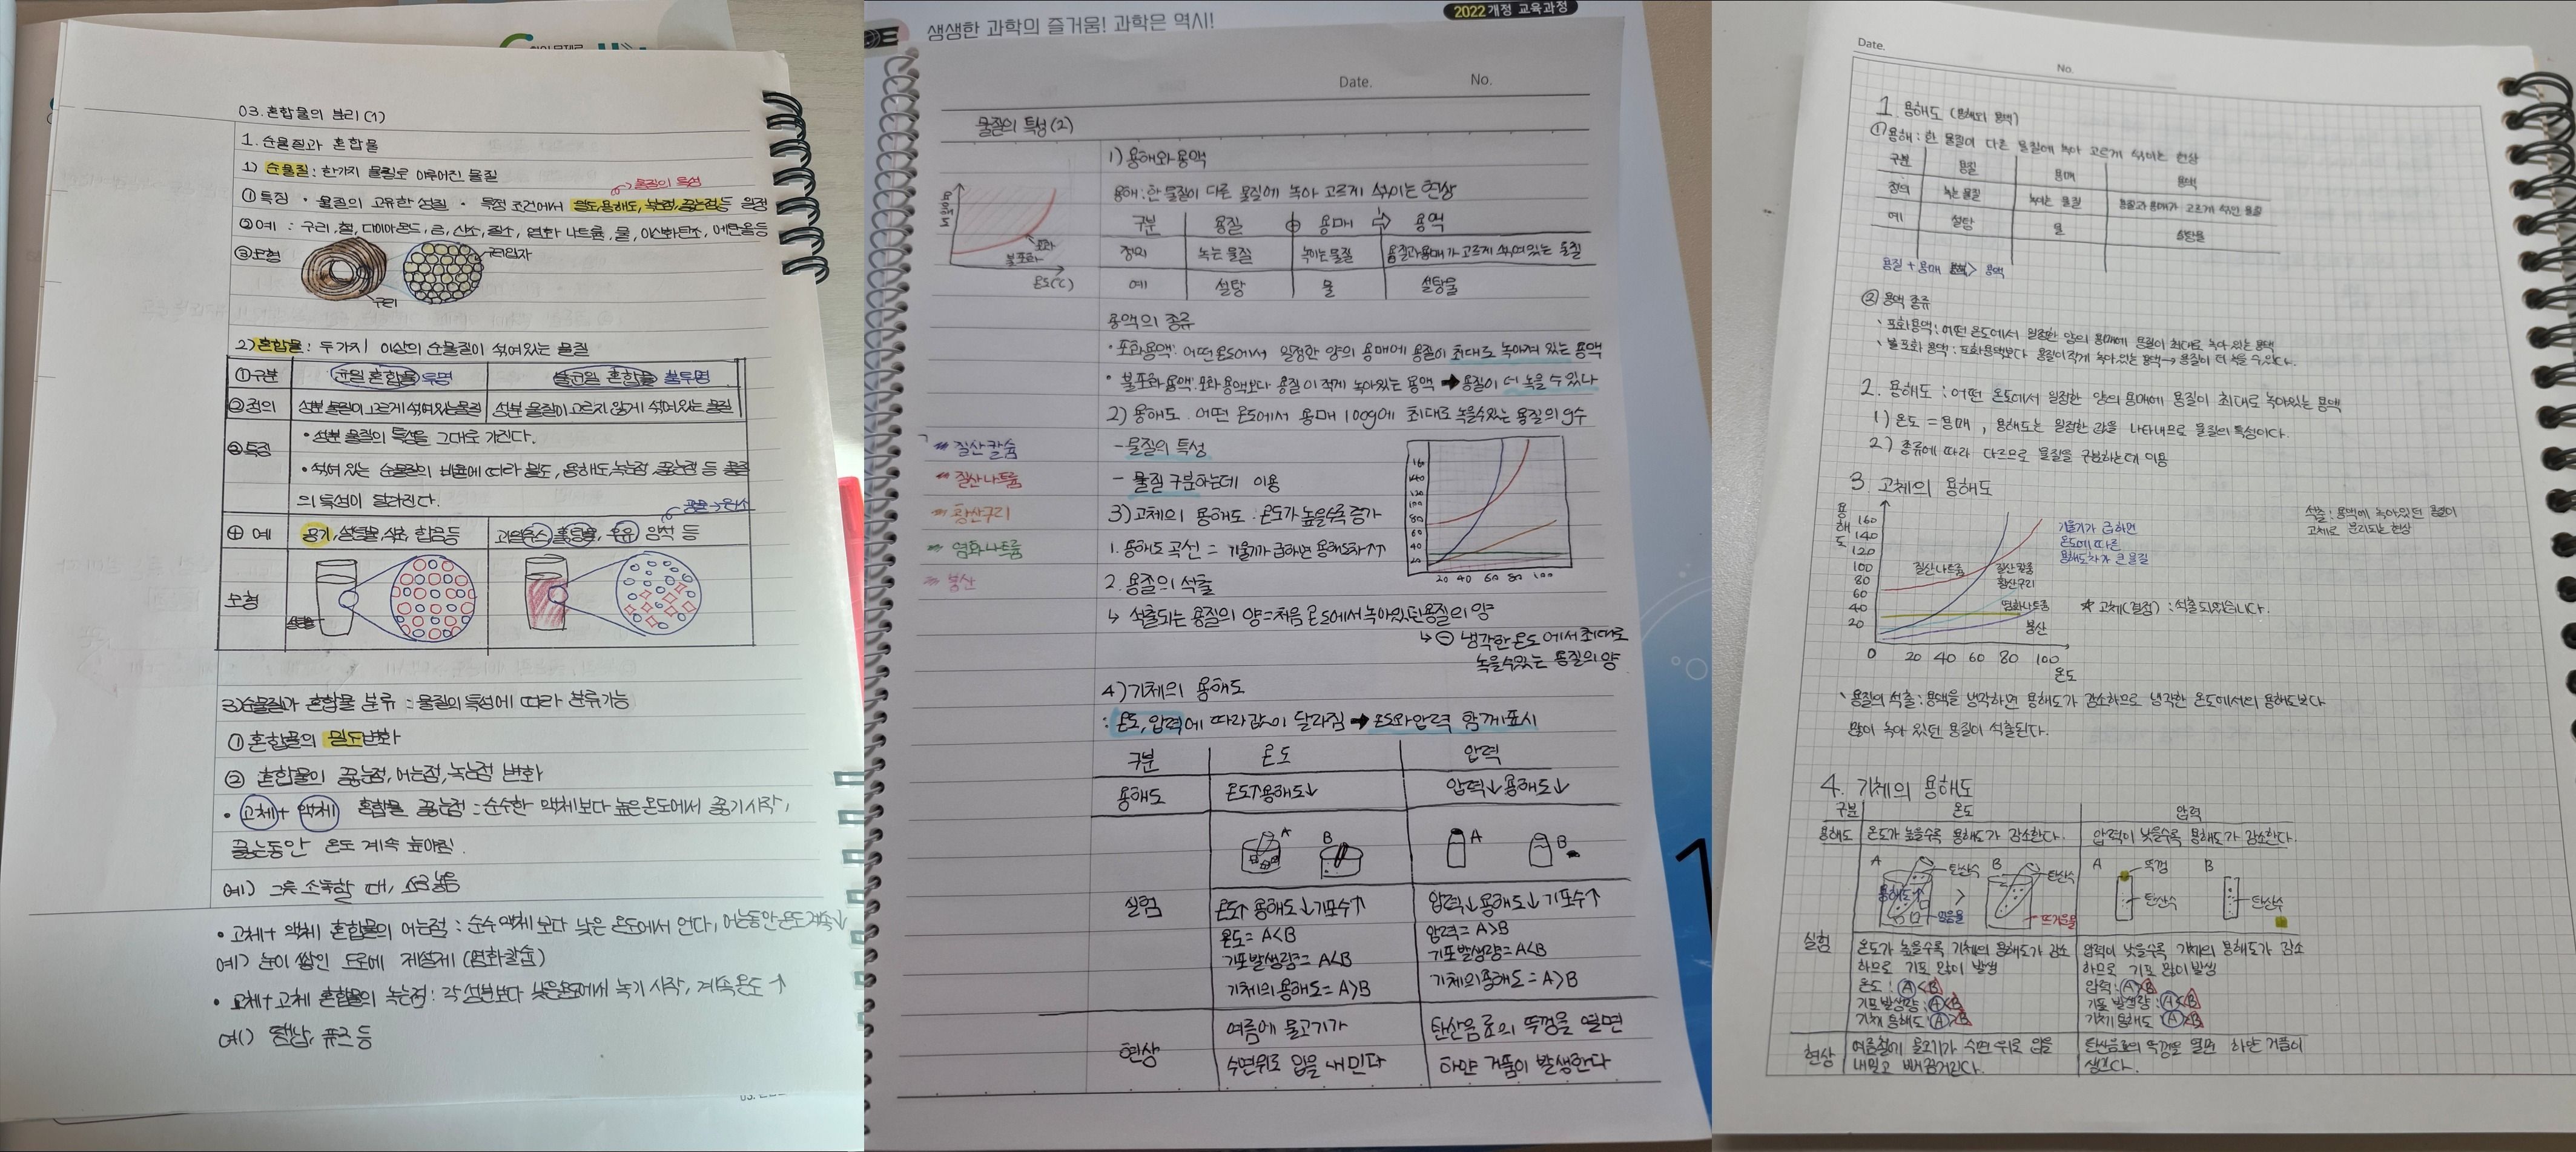 03. 혼합물의 분리(1)
1. 순물질과 혼합물
1) 순물질 : 한가지 물질로 이루어진 물질
물질의 특성
① 특징 · 물질의 고유한 성질 · 특정 조건에서 밀도,용해도,녹는점,끓는점등 일정
② 예 : 구리, 철, 다이아몬드, 금, 산소, 질소, 염화 나트륨, 물, 이산화탄소, 에탄올등
③ 모형
구리입자
구리
2) 혼합물 : 두가지 이상의 순물질이 섞여있는 물질
① 구분 균일 혼합물 투명 불균일 혼합물 불투명
② 정의 성분 물질이 고르게 섞여있는물질 성분 물질이 고르지 않게 섞여있는 물질
③ 특징 • 성분 물질의 특성을 그대로 가진다.
• 섞여 있는 순물질의 비율에 따라 밀도, 용해도,녹는점,끓는점 등 물질
의 특성이 달라진다.
④ 예 공기, 설탕물, 식초, 합금등 과일쥬스, 흙탕물, 우유, 암석 등
모형
설탕물
3) 순물질과 혼합물 분류 : 물질의 특성에 따라 분류가능
① 혼합물의 밀도변화
② 혼합물의 끓는점, 어는점, 녹는점 변화
• 고체 + 액체 혼합물 끓는점 : 순수한 액체보다 높은온도에서 끓기시작,
끓는동안 온도 계속 높아짐.
예) 그릇 소독할 때, 소금넣음
• 고체 + 액체 혼합물의 어는점 : 순수 액체 보다 낮은 온도에서 언다, 어는동안온도계속↓
예) 눈이 쌓인 도로에 제설제 (염화칼슘)
• 고체+고체 혼합물의 녹는점 : 각 성분보다 낮은온도에서 녹기 시작, 계속온도 ↑
예) 땜납, 퓨즈 등
생생한 과학의 즐거움! 과학은 역시!
2022 개정 교육과정
Date. No.
물질의 특성(2)
1) 용해와 용액
용해 : 한 물질이 다른 물질에 녹아 고르게 섞이는 현상
구분 용질 + 용매 ⇨ 용액
정의 녹는 물질 녹이는 물질 용질과용매가 고르게 섞여있는 물질
예 설탕 물 설탕물
용해도
포화
불포화
온도(℃)
용액의 종류
• 포화용액: 어떤온도에서 일정한 양의 용매에 용질이 최대로 녹아져 있는 용액
• 불포화용액: 포화용액보다 용질이 적게 녹아있는 용액 ➡ 용질이 더 녹을 수 있다
2) 용해도 : 어떤 온도에서 용매 100g에 최대로 녹을수있는 용질의 g수
- 물질의 특성
- 물질 구분하는데 이용
질산칼슘
질산나트륨
황산구리
염화나트륨
붕산
3) 고체의 용해도 : 온도가 높을수록 증가
1. 용해도 곡선 = 기울기가 급하면 용해도차↑↑
160
140
120
100
80
60
40
20
20 40 60 80 100
2. 용질의 석출
↳ 석출되는 용질의 양 = 처음 온도에서 녹아있던용질의 양
↳ ⊖ 냉각한온도에서 최대로
녹을수있는 용질의양
4) 기체의 용해도
: 온도, 압력에 따라값이 달라짐 ➡ 온도와압력 함께표시
구분 온도 압력
용해도 온도↑용해도↓ 압력↓용해도↓
A B A B
실험 온도↑ 용해도↓기포수↑ 압력↓용해도↓기포수↑
온도= A<B 압력= A>B
기포발생량= A<B 기포발생량=A<B
기체의용해도= A>B 기체의용해도 = A>B
현상 여름에 물고기가 탄산음료의 뚜껑을 열면
수면위로 입을 내민다 하얀 거품이 발생한다
Date.
No.
1. 용해도 (용해와 용액)
① 용해 : 한 물질이 다른 물질에 녹아 고르게 섞이는 현상
구분 용질 용매 용액
정의 녹는 물질 녹이는 물질 용질과용매가 고르게 섞인 물질
예 설탕 물 설탕물
용질 + 용매 > 용액
② 용액 종류
· 포화용액 : 어떤 온도에서 일정한 양의 용매에 용질이 최대로 녹아 있는 용액
· 불포화 용액 : 포화용액보다 용질이적게 녹아있는 용액 → 용질이 더 녹을 수있다.
2. 용해도 : 어떤 온도에서 일정한 양의 용매에 용질이 최대로 녹아있는 용액
1) 온도 = 용매, 용해도는 일정한 값을 나타내므로 물질의 특성이다.
2) 종류에 따라 다르므로 물질을 구분하는데 이용
3. 고체의 용해도
석출 : 용액에 녹아있던 용질이
고체로 분리되는 현상
용해도
160
140
120
100
80
60
40
20
0 20 40 60 80 100
온도
질산나트륨
질산칼륨
황산구리
염화나트륨
붕산
기울기가 급하면
온도에 따른
용해도차가 큰 물질
☆ 고체(결정) : 석출되었습니다.
· 용질의 석출 : 용액을 냉각하면 용해도가 감소하므로 냉각한 온도에서의 용해도보다
많이 녹아 있던 용질이 석출된다.
4. 기체의 용해도
구분 온도 압력
용해도 온도가 높을수록 용해도가 감소한다. 압력이 낮을수록 용해도가 감소한다.
A 탄산수 B 탄산수 A 뚜껑 B
용해도↑ > 탄산수 탄산수
얼음물 뜨거운물
실험 온도가 높을수록 기체의 용해도가 감소 압력이 낮을수록 기체의 용해도가 감소
하므로 기포 많이 발생 하므로 기포 많이발생
온도 : A<B 압력 : A>B
기포 발생량 : A<B 기포 발생량 : A<B
기체 용해도 : A>B 기체 용해도 A>B
현상 여름철에 물고기가 수면 위로 입을 탄산음료의 뚜껑을 열면 하얀 거품이
내밀고 뻐끔거린다. 생긴다.